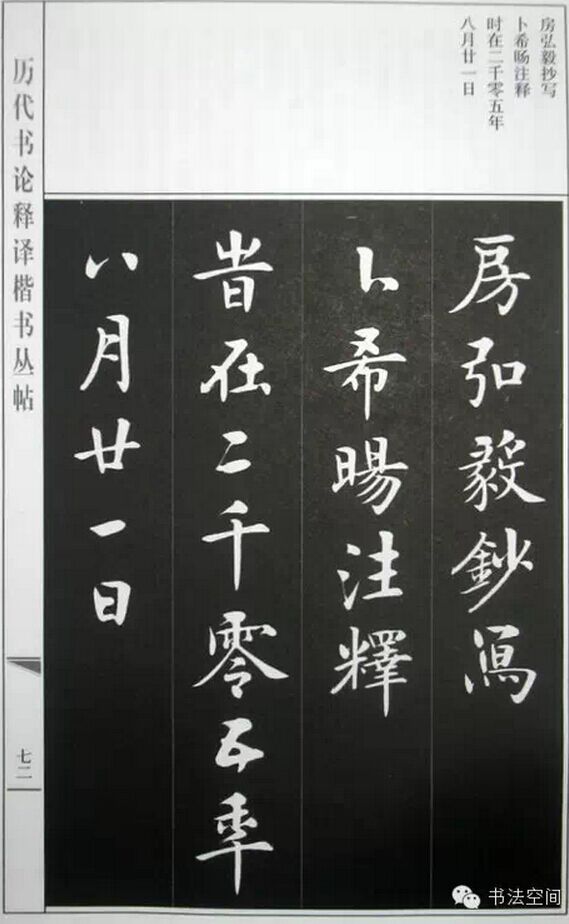 房弘毅抄写
卜希旸注释
时在二千零五年
八月廿一日
历代书论释译楷书丛帖
七二
房弘毅鈔寫
卜希暘注釋
旹在二千零五年
八月廿一日
书法空间